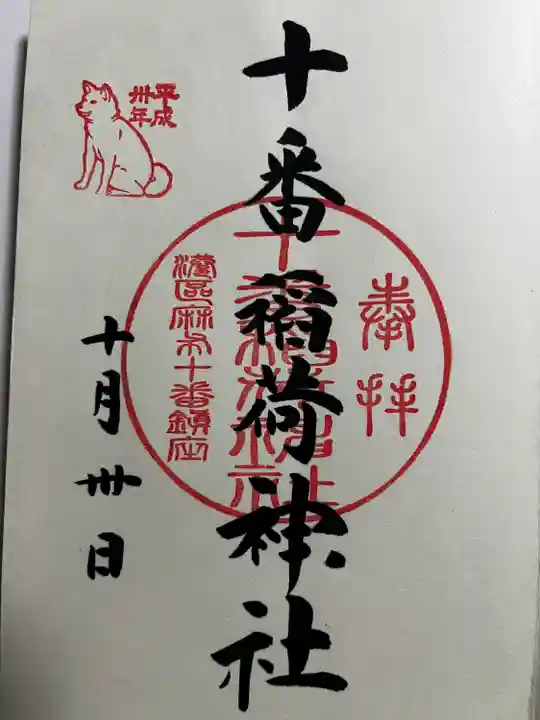 奉拝
十番稲荷神社
港区麻布十番鎮座
平成
卅年
十月卅日